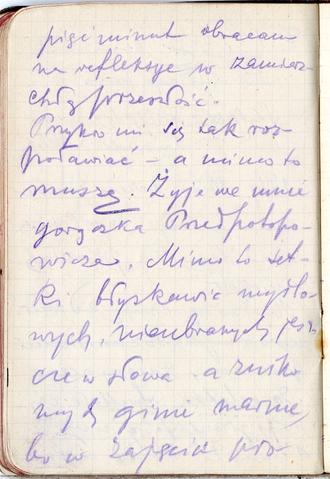 pięć minut obracam
na refleksje w zamierz-
chłą przeszłość.
Przykro mi się tak roz-
podawiać – a mimo to
muszę. Żyje we mnie
gorączka Przedpotopo-
wicza. Mimo to set-
ki błyskawic myślo-
wych, nieubranych jesz-
cze w słowa a zniko-
mych ginie marnie,
bo w zajęcia